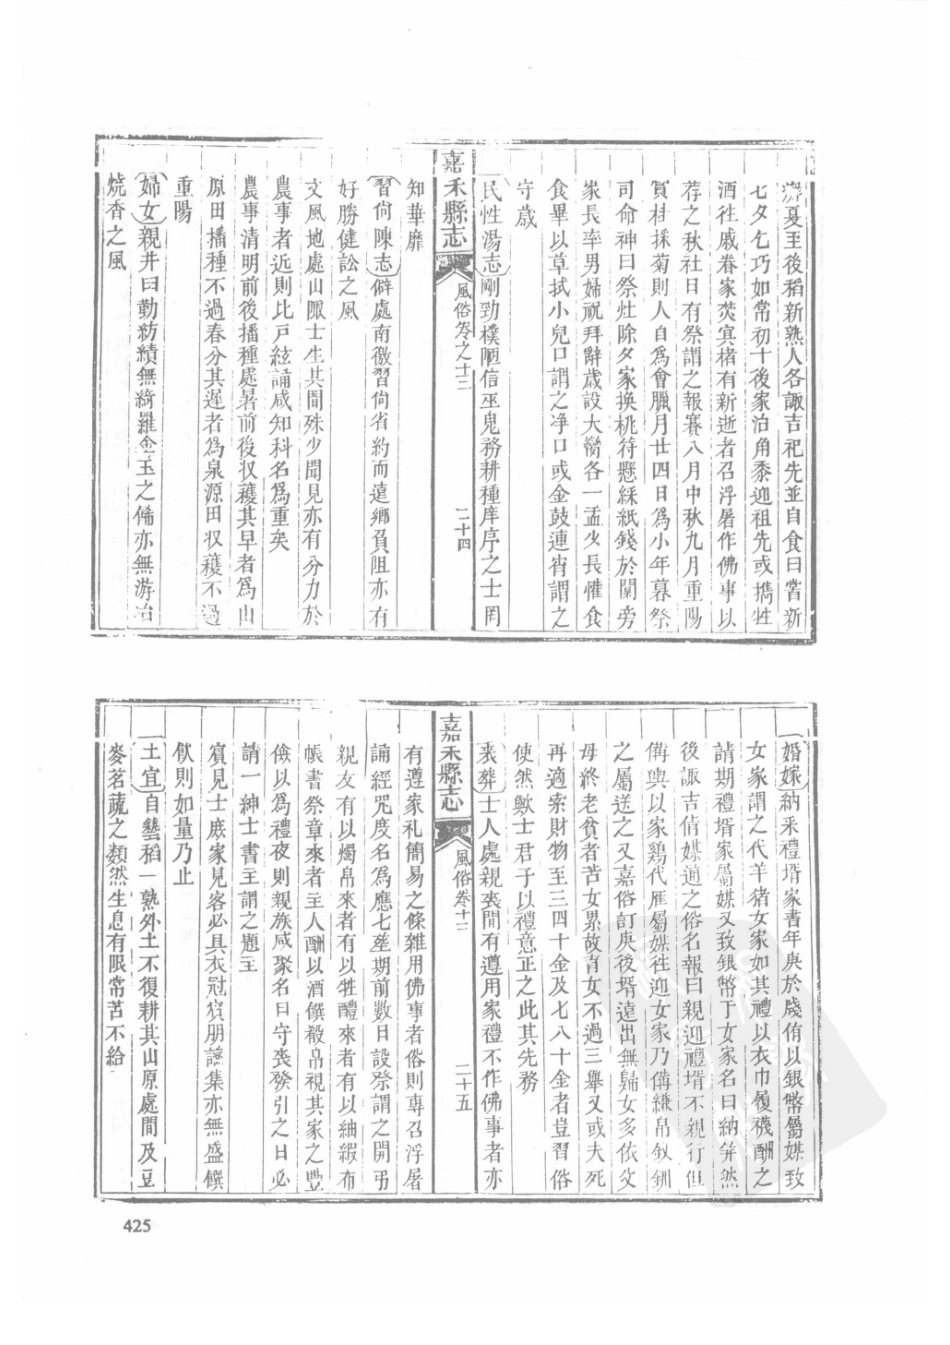 夏至後稻新熟人各諏吉祀先並自食曰嘗新
七夕乞巧如常初十後家泊角黍迎祖先或携牲
酒徃戚眷家焚寘楮有新逝者召浮屠作佛事以
荐之秋社日有祭謂之報賽八月中秋九月重陽
賞桂採菊則人自爲會臘月廿四日爲小年暮祭
司命神曰祭灶除夕家換桃符懸綵紙錢於闑旁
家長率男婦祝拜辭歲設大臠各一盂少長惟食
食畢以草拭小兒口謂之净口或金鼓連宵謂之
守歲
民性湯志剛勁樸陋信巫鬼務耕種庠序之士罔
嘉禾縣志
風俗卷之十三
二十四
知華靡
習尙陳志僻處南徼習尙省約而遠鄉負阻亦有
好勝健訟之風
文風地處山陬士生其間殊少聞見亦有分力於
農事者近則比戸絃誦咸知科名爲重矣
農事清明前後播種處暑前後収穫其早者爲山
原田播種不過春分其遲者爲泉源田収穫不過
重陽
婦女親井臼勤紡績無綺羅金玉之飾亦無游冶
燒香之風
婚嫁納采禮壻家書年庚於牋侑以銀幣屬媒致
女家謂之代羊猪女家如其禮以衣巾履襪酬之
請期禮壻家屬媒又致銀幣于女家名曰納幷然
後諏吉倩媒通之俗名報曰親迎禮壻不親行但
備輿以家鷄代雁屬媒徃迎女家乃備縑帛釵釧
之屬送之又嘉俗訂庚後壻遠出無歸女多依父
母終老貧者苦女累故育女不過三舉又或夫死
再適索財物至三四十金及七八十金者豈習俗
使然歟士君子以禮意正之此其先務
喪葬士人處親喪間有遵用家禮不作佛事者亦
嘉禾縣志
風俗卷十三
二十五
有遵家礼簡易之條雜用佛事者俗則專召浮屠
誦經咒度名爲應七塟期前数日設祭謂之開弔
親友有以燭帛來者有以牲醴來者有以紬緞布
帳書祭章來者主人酬以酒饌縠帛視其家之豐
儉以爲禮夜則親族咸聚名曰守喪發引之日必
請一紳士書主謂之題主
賓見士庶家見客必具衣冠賓朋讌集亦無盛饌
飲則如量乃止
土宜自藝稻一熟外土不復耕其山原處間及豆
麥茗蔬之類然生息有限常苦不給
425